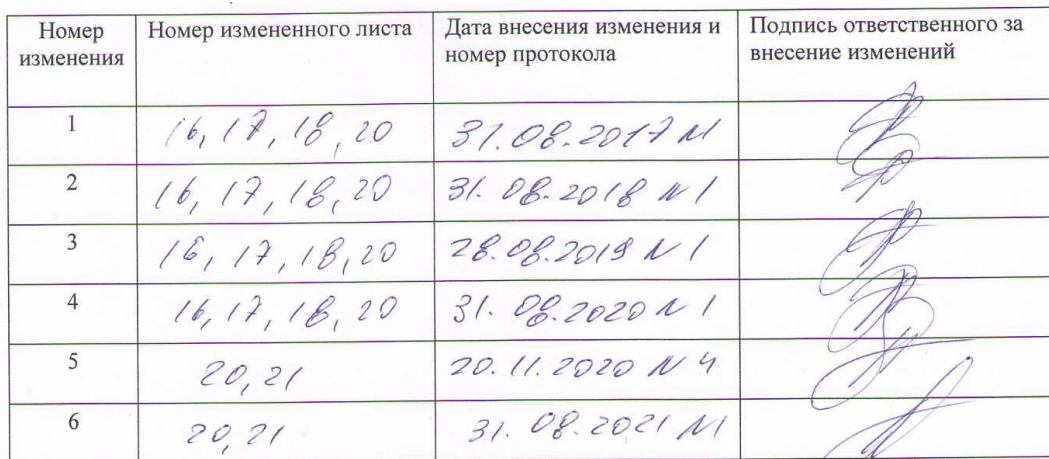 Номер изменения | Номер измененного листа | Дата внесения изменения и номер протокола | Подпись ответственного за внесение изменений
1 | 16, 17, 18, 20 | 31.08.2017 N1
2 | 16, 17, 18, 20 | 31.08.2018 N1
3 | 16, 17, 18, 20 | 28.08.2019 N1
4 | 16, 17, 18, 20 | 31.08.2020 N1
5 | 20, 21 | 20.11.2020 N4
6 | 20, 21 | 31.08.2021 N1